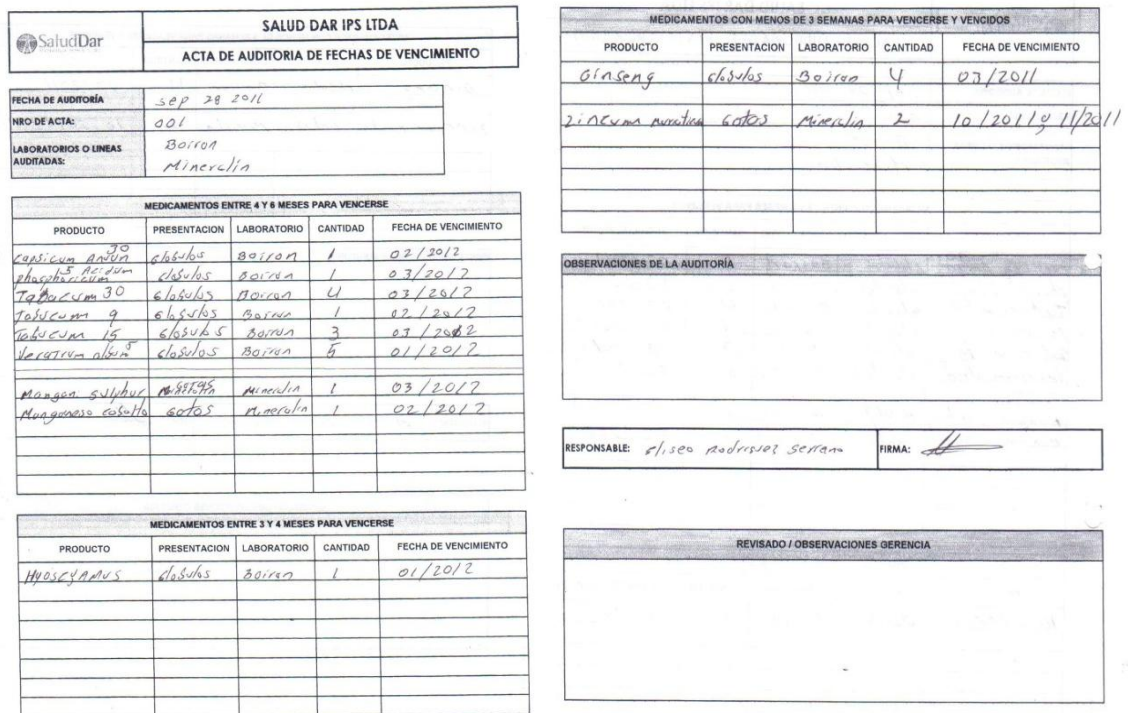 SaludDar
SALUD DAR IPS LTDA
ACTA DE AUDITORIA DE FECHAS DE VENCIMIENTO
FECHA DE AUDITORÍA sep 28 2011
NRO DE ACTA: 001
LABORATORIOS O LINEAS AUDITADAS: Boiron
Mineralin
MEDICAMENTOS ENTRE 4 Y 6 MESES PARA VENCERSE
PRODUCTO PRESENTACION LABORATORIO CANTIDAD FECHA DE VENCIMIENTO
Capsicum Annun 30 Globulos Boiron 1 02/2012
phosphoricum 5 Acidum Globulos Boiron 1 03/2012
Tabacum 30 Globulos Boiron 4 03/2012
Tabucum 9 Globulos Boiron 1 02/2012
Tabucum 15 Globulos Boiron 3 03/2012
Veratrum album 5 Globulos Boiron 5 01/2012
Mangan. sulphur Gotas Mineralin 1 03/2012
Manganeso cobalto Gotas Mineralin 1 02/2012
MEDICAMENTOS ENTRE 3 Y 4 MESES PARA VENCERSE
PRODUCTO PRESENTACION LABORATORIO CANTIDAD FECHA DE VENCIMIENTO
HYOSCYAMUS Globulos Boiron 1 01/2012
MEDICAMENTOS CON MENOS DE 3 SEMANAS PARA VENCERSE Y VENCIDOS
PRODUCTO PRESENTACION LABORATORIO CANTIDAD FECHA DE VENCIMIENTO
Ginseng Globulos Boiron 4 03/2011
Zincuma Gotas Mineralin 2 10/2011 y 11/2011
OBSERVACIONES DE LA AUDITORÍA
RESPONSABLE: Eliseo Rodriguez Serrano FIRMA:
REVISADO / OBSERVACIONES GERENCIA